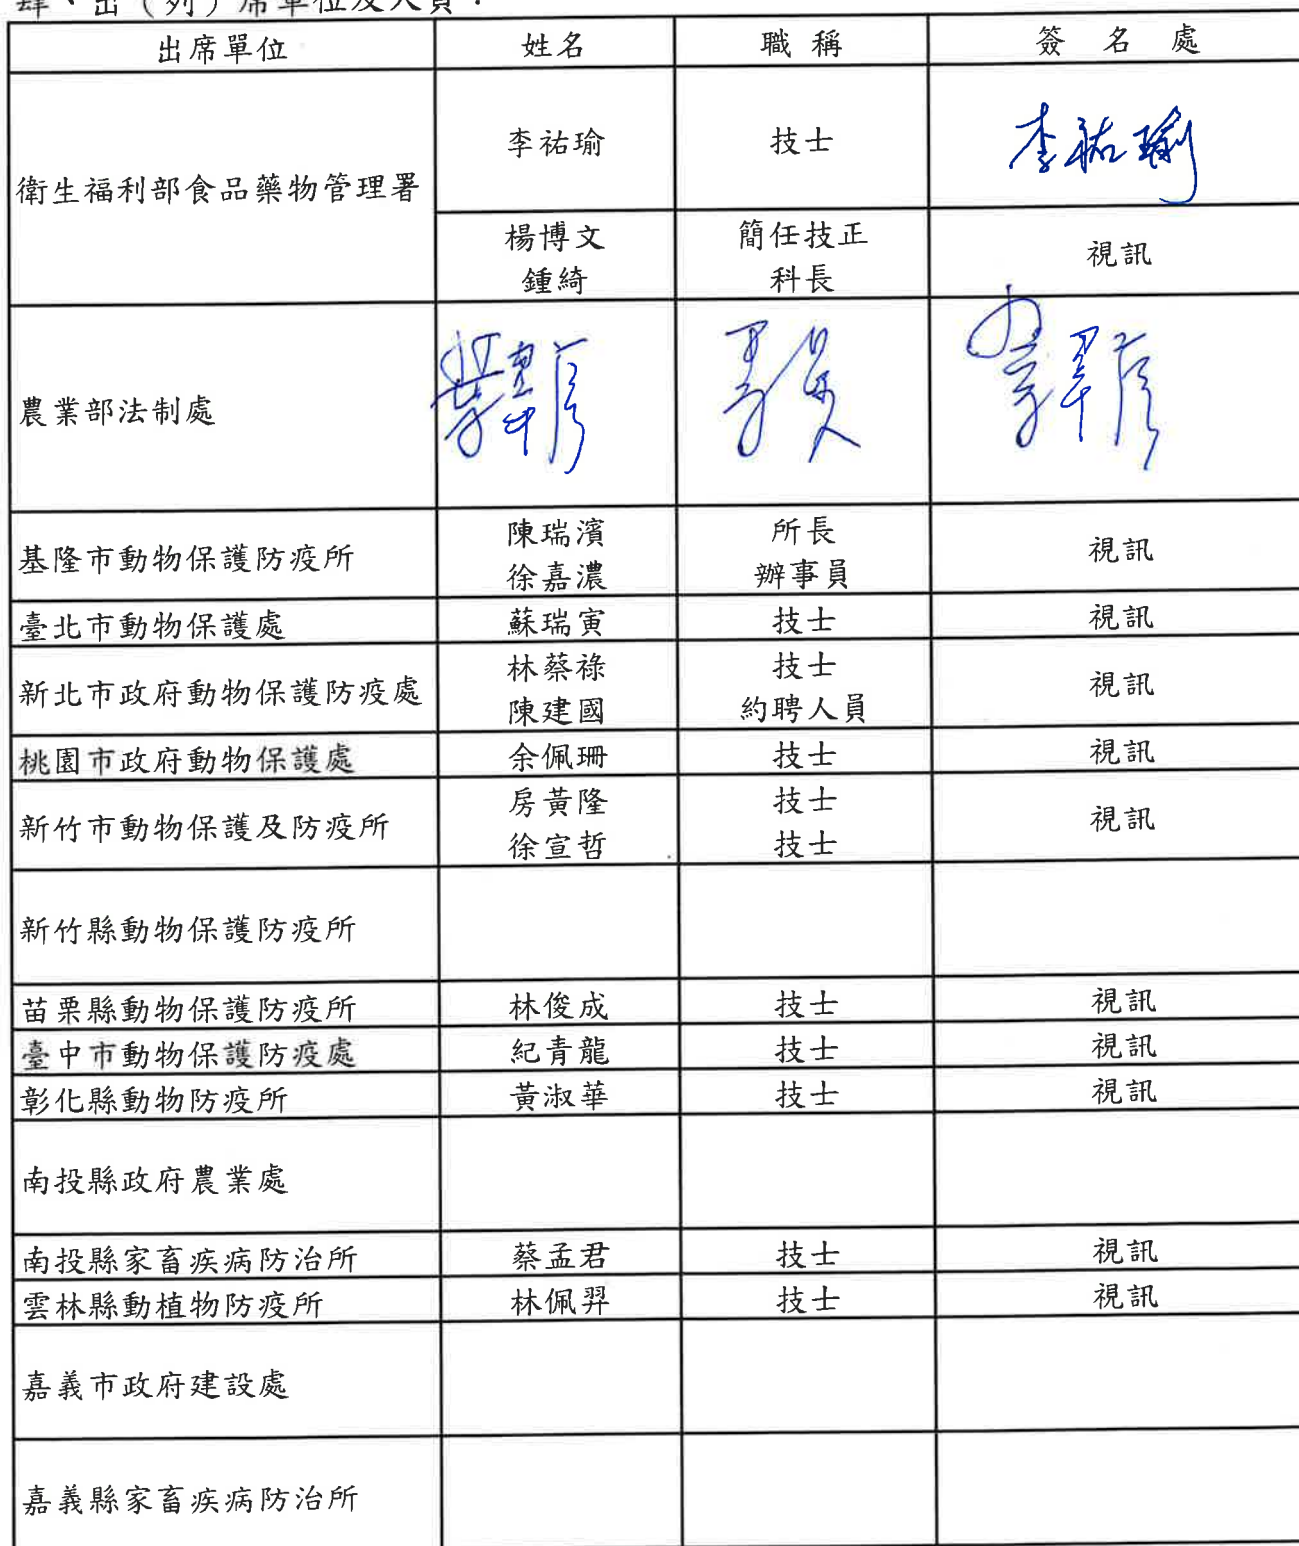 肆、出（列）席單位及人員：
出席單位 姓名 職稱 簽名處
衛生福利部食品藥物管理署 李祐瑜 技士 李祐瑜
楊博文 簡任技正 視訊
鍾綺 科長
農業部法制處
基隆市動物保護防疫所 陳瑞濱 所長 視訊
徐嘉濃 辦事員
臺北市動物保護處 蘇瑞寅 技士 視訊
新北市政府動物保護防疫處 林蔡祿 技士 視訊
陳建國 約聘人員
桃園市政府動物保護處 余佩珊 技士 視訊
新竹市動物保護及防疫所 房黃隆 技士 視訊
徐宣哲 技士
新竹縣動物保護防疫所
苗栗縣動物保護防疫所 林俊成 技士 視訊
臺中市動物保護防疫處 紀青龍 技士 視訊
彰化縣動物防疫所 黃淑華 技士 視訊
南投縣政府農業處
南投縣家畜疾病防治所 蔡孟君 技士 視訊
雲林縣動植物防疫所 林佩羿 技士 視訊
嘉義市政府建設處
嘉義縣家畜疾病防治所